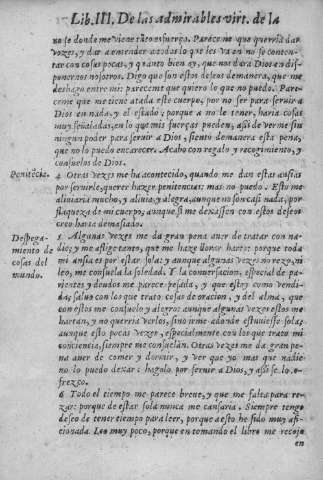 Lib. III. De las admirables virt. de la
no se donde me viene tãto esfuerço. Pareceme que querria dar
vozes, y dar a entender a todos lo que les va en no se conten-
tar con cosas pocas, y quanto bien ay, que nos dara Dios en dis-
ponernos nosotros. Digo que son estos desseos demanera, que me
deshago entre mi: pareceme que quiero lo que no puedo. Pare-
ceme que me tiene atada este cuerpo, por no ser para seruir a
Dios en nada, y el estado; porque a no le tener, haria cosas
muy señaladas, en lo que mis fuerças pueden, assi de ver me sin
ningun poder para seruir a Dios, siento demanera esta pena,
que no lo puedo encarecer. Acabo con regalo y recogimiento, y
consuelos de Dios.
Penitẽcia.
4 Otras vezes me ha acontecido, quando me dan estas ansias
por seruirle, querer hazer penitencias: mas no puedo. Esto me
aliuiaria mucho, y aliuia y alegra, aunque no son casi nada, por
flaqueza de mi cuerpo, aunque si me dexassen con estos desseos
creo haria demasiado.
Despega-
miento de
cosas del
mundo.
5 Algunas vezes me da gran pena auer de tratar con na-
die; y me aflige tanto, que me haze llorar harto: porque toda
mi ansia es por estar sola: y aunque algunas vezes no rezo, ni
leo, me consuela la soledad. Y la conuersacion, especial de pa-
rientes y deudos me parece pesada, y que estoy como vendi-
da, saluo con los que trato cosas de oracion, y del alma, que
con estos me consuelo y alegro: aunque algunas vezes estos me
hartan, y no querria verlos, sino irme adonde estuuiesse sola:
aunque esto pocas vezes, especialmente con los que trato mi
conciencia, siempre me consuelan. Otras vezes me da gran pe-
na auer de comer y dormir, y ver que yo mas que nadie
no lo puedo dexar: hagolo por seruir a Dios, y assi se lo o-
frezco.
6 Todo el tiempo me parece breue, y que me falta para re-
zar: porque de estar sola nunca me cansaria. Siempre tengo
deseo de tener tiempo para leer, porque a esto he sido muy afi-
cionada. Leo muy poco, porque en tomando el libro me recojo
en